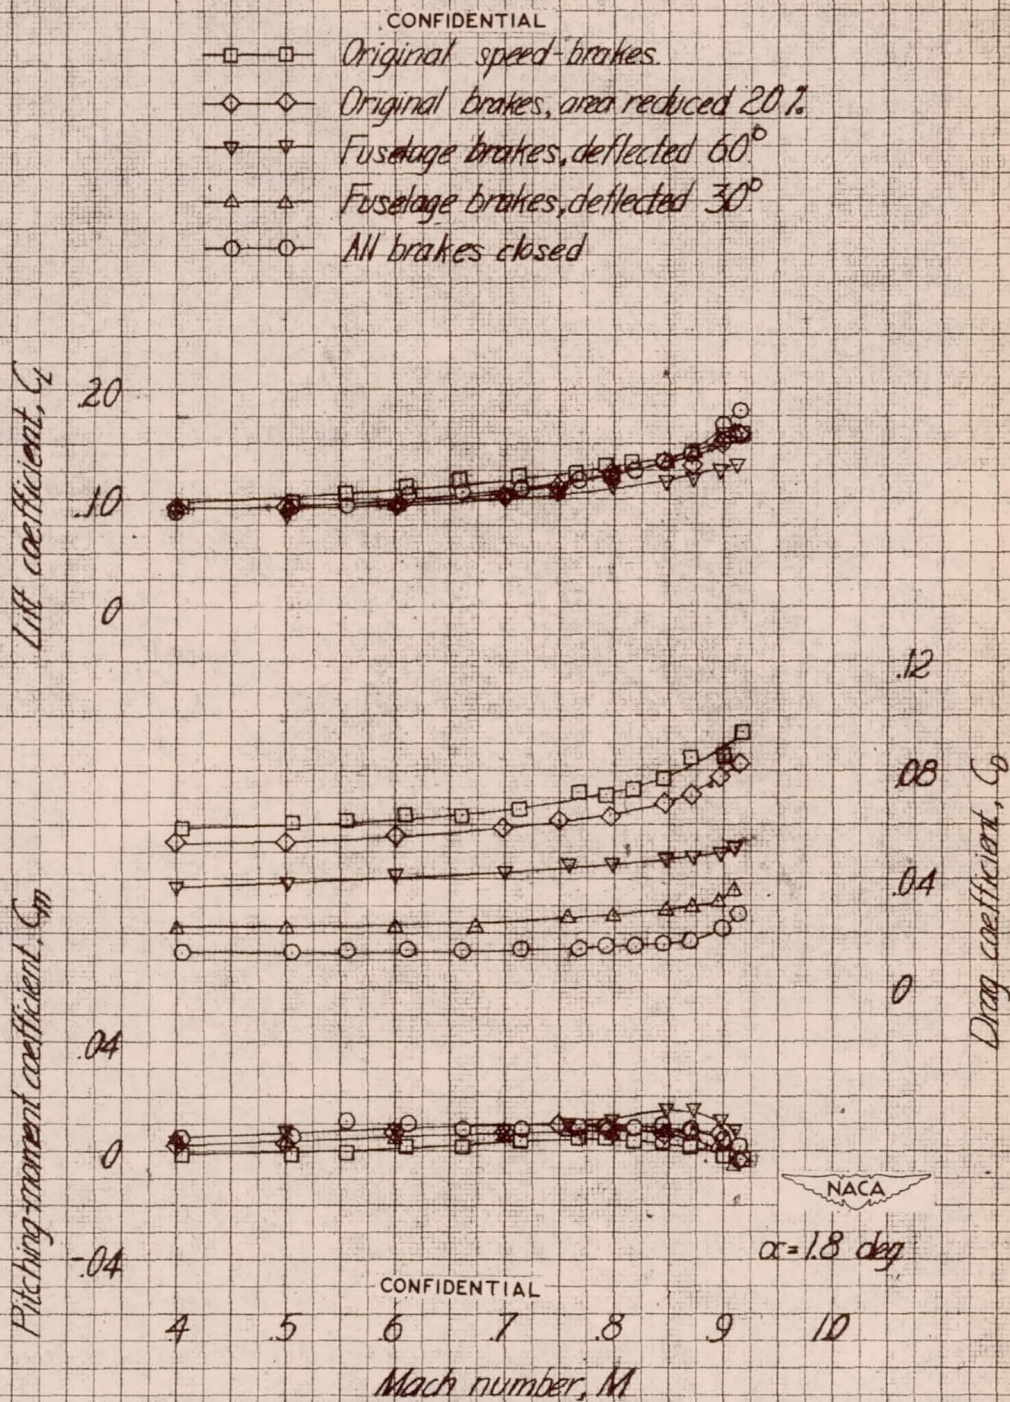 CONFIDENTIAL
Original speed-brakes.
Original brakes, area reduced 20%
Fuselage brakes, deflected 60°
Fuselage brakes, deflected 30°
All brakes closed
Lift coefficient, C_L
.20
.10
0
.12
.08
.04
0
Drag coefficient, C_D
Pitching-moment coefficient, C_m
.04
0
-.04
NACA
α=1.8 deg
CONFIDENTIAL
.4 .5 .6 .7 .8 .9 1.0
Mach number, M